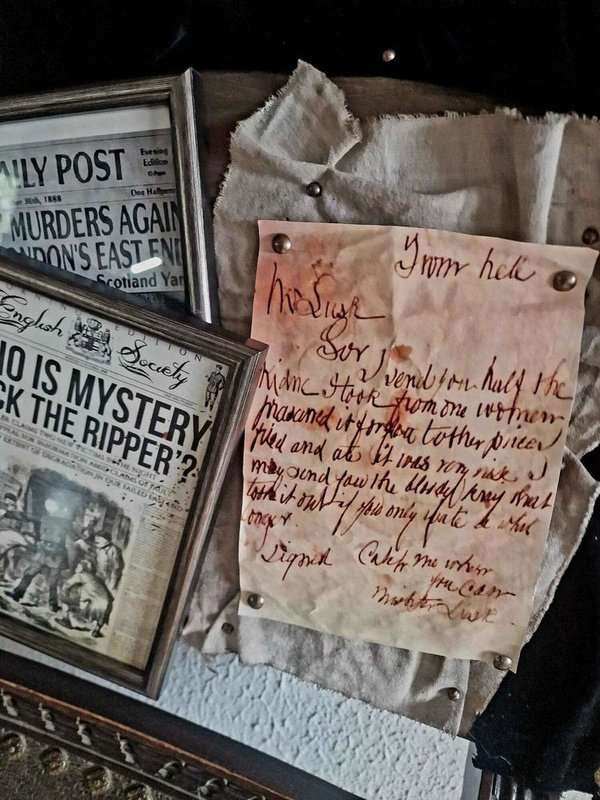 AILY POST
Evening
Edition
1888
MURDERS AGAIN
NDON'S EAST END
Scotland Yar
English
EDITION
Society
HO IS MYSTERY
CK THE RIPPER'?
From hell
Mr Lusk
Sor
I send you half the
Kidne I took from one women
prasarved it for you tother piece I
fried and ate it was very nise I
may send you the bloody knif that
took it out if you only wate a whil
longer.
Signed Catch me when
you Can
Mishter Lusk